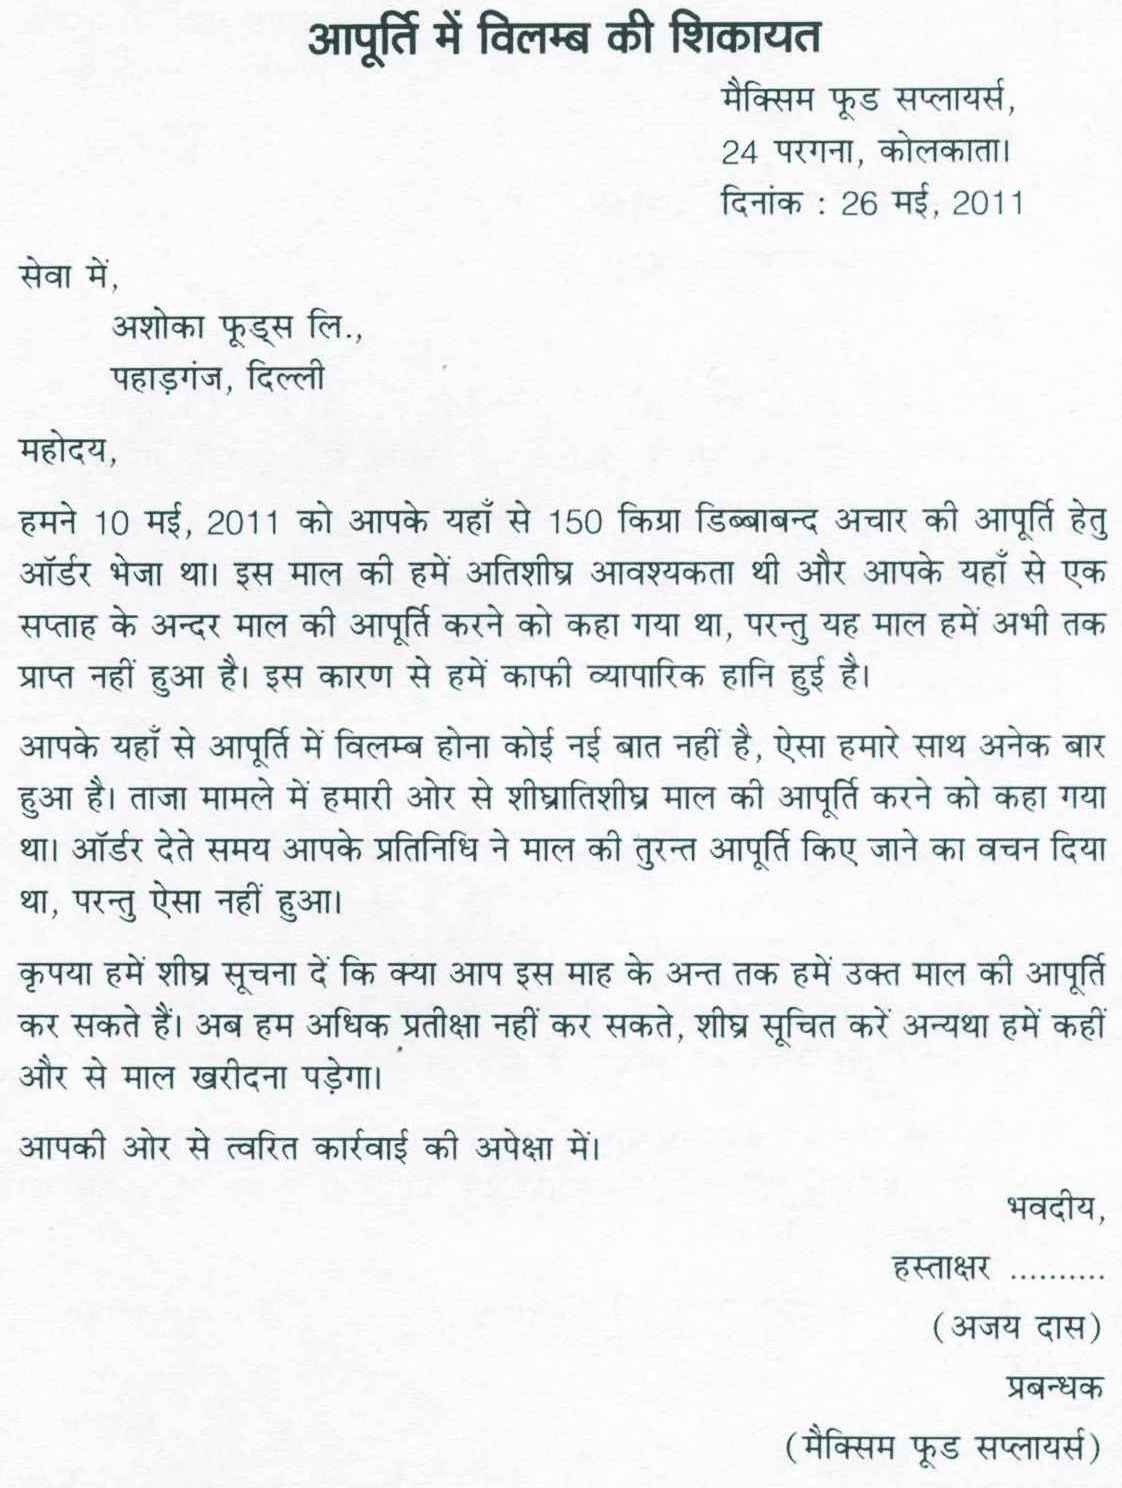 आपूर्ति में विलम्ब की शिकायत
मैक्सिम फूड सप्लायर्स,
24 परगना, कोलकाता।
दिनांक : 26 मई, 2011
सेवा में,
अशोका फूड्स लि.,
पहाड़गंज, दिल्ली
महोदय,
हमने 10 मई, 2011 को आपके यहाँ से 150 किग्रा डिब्बाबन्द अचार की आपूर्ति हेतु
ऑर्डर भेजा था। इस माल की हमें अतिशीघ्र आवश्यकता थी और आपके यहाँ से एक
सप्ताह के अन्दर माल की आपूर्ति करने को कहा गया था, परन्तु यह माल हमें अभी तक
प्राप्त नहीं हुआ है। इस कारण से हमें काफी व्यापारिक हानि हुई है।
आपके यहाँ से आपूर्ति में विलम्ब होना कोई नई बात नहीं है, ऐसा हमारे साथ अनेक बार
हुआ है। ताजा मामले में हमारी ओर से शीघ्रातिशीघ्र माल की आपूर्ति करने को कहा गया
था। ऑर्डर देते समय आपके प्रतिनिधि ने माल की तुरन्त आपूर्ति किए जाने का वचन दिया
था, परन्तु ऐसा नहीं हुआ।
कृपया हमें शीघ्र सूचना दें कि क्या आप इस माह के अन्त तक हमें उक्त माल की आपूर्ति
कर सकते हैं। अब हम अधिक प्रतीक्षा नहीं कर सकते, शीघ्र सूचित करें अन्यथा हमें कहीं
और से माल खरीदना पड़ेगा।
आपकी ओर से त्वरित कार्रवाई की अपेक्षा में।
भवदीय,
हस्ताक्षर ..........
(अजय दास)
प्रबन्धक
(मैक्सिम फूड सप्लायर्स)